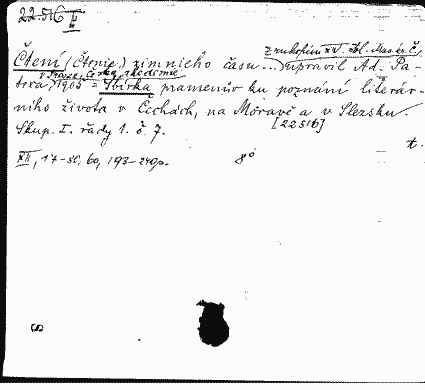 22.516 II
z rukopisu XV. stol. Mus. kr. č.
Čtení (Čtenie) zimnieho času...) upravil Ad. Pa-
v Praze, Česká akademie
tera, 1905 = Sbírka pramenův ku poznání literár-
ního života v Čechách, na Moravě a v Slezsku.
Skup. I. řady 1. č. 7.
[22516]
t.
XII, 17-50, 60, 193-240 p.
8°